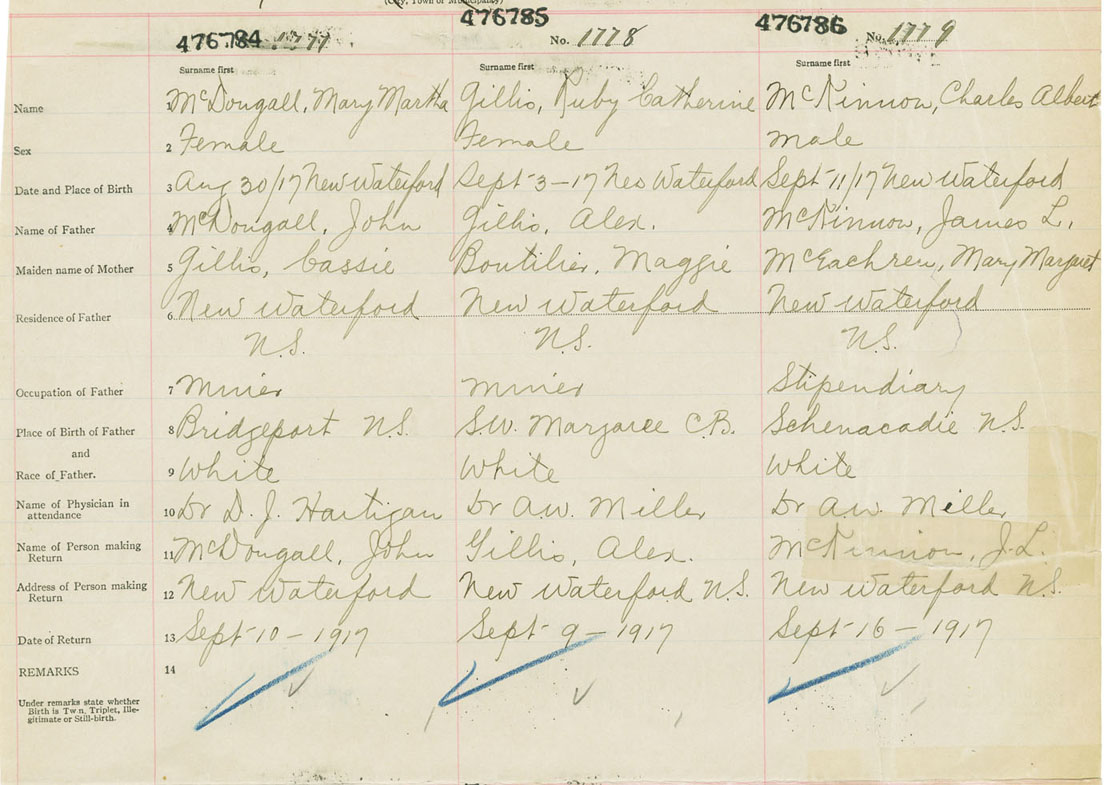 (City, Town or Municipality)
476784 1777 476785 No. 1778 476786 No. 1779
Surname first Surname first Surname first
Name 1 McDougall, Mary Martha Gillis, Ruby Catherine McKinnon, Charles Albert
Sex 2 Female Female male
Date and Place of Birth 3 Aug 30/17 New Waterford Sept 3-17 New Waterford Sept 11/17 New Waterford
Name of Father 4 McDougall, John Gillis, Alex. McKinnon, James L.
Maiden name of Mother 5 Gillis, Cassie Boutilier, Maggie McEachren, Mary Margaret
Residence of Father 6 New Waterford New Waterford New Waterford
N.S. N.S. N.S.
Occupation of Father 7 Miner Miner Stipendiary
Place of Birth of Father 8 Bridgeport N.S. S.W. Margaree C.B. Schenacadie N.S.
and
Race of Father. 9 White White White
Name of Physician in
attendance 10 Dr D. J. Hartigan Dr A.W. Miller Dr A.W. Miller
Name of Person making
Return 11 McDougall, John Gillis, Alex. McKinnon, J.L.
Address of Person making
Return 12 New Waterford New Waterford N.S. New Waterford N.S.
Date of Return 13 Sept 10 - 1917 Sept 9 - 1917 Sept 16 - 1917
REMARKS 14
Under remarks state whether
Birth is Twin, Triplet, Ille-
gitimate or Still-birth.